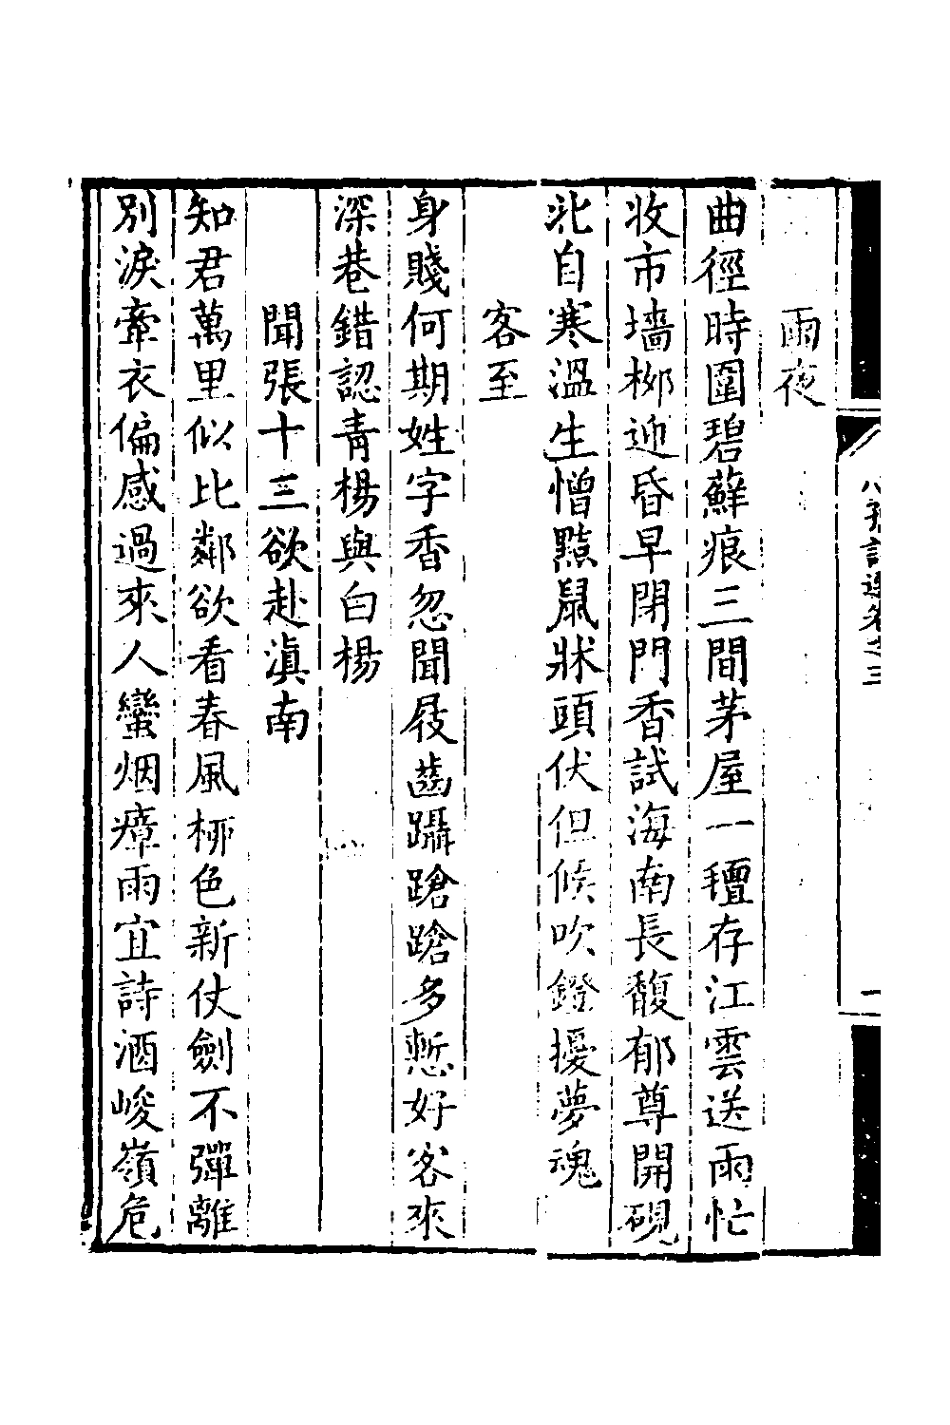 雨夜
曲徑時圍碧蘚痕三間茅屋一㐭存江雲送雨忙
收市墻柳迎昏早閉門香試海南長馥郁尊開硯
北自寒溫生憎黠鼠牀頭伏但候吹鐙擾夢魂
客至
身賤何期姓字香忽聞屐齒躡蹌蹌多慙好客來
深巷錯認青楊與白楊
聞張十三欲赴滇南
知君萬里似比鄰欲看春風柳色新仗劍不彈離
別淚牽衣偏感過來人蠻烟瘴雨宜詩酒峻嶺危
卷之三
一